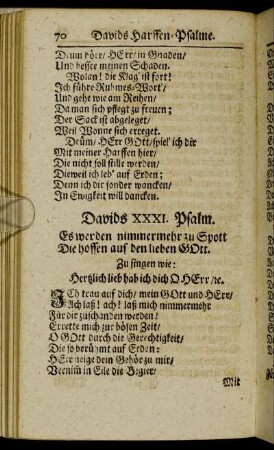 70 Davids Harffen-Psalme.
Drum höre/ HErr/ in Gnaden/
Und bessre meinen Schaden.
Wolan! die Klag' ist fort!
Ich führe Ruhmes-Wort/
Und geht wie am Reihen/
Da man sich pflegt zu freuen;
Der Sack ist abgeleget/
Weil Wonne sich erreget.
Drüm/ HErr GOtt/ spiel' ich dir
Mit meiner Harffen hier/
Die nicht soll stille werden/
Dieweil ich leb' auf Erden;
Denn ich dir sonder wancken/
In Ewigkeit will dancken.
Davids XXXI. Psalm.
Es werden nimmermehr zu Spott
Die hoffen auf den lieben GOtt.
Zu singen wie:
Hertzlich lieb hab ich dich O HErr/ ec.
ICh trau auf dich/ mein GOtt und HErr/
Ach laß! ach! laß mich nimmermehr
Für dir zuschanden werden!
Errette mich zur bösen Zeit/
O GOtt durch die Gerechtigkeit/
Die so berühmt auf Erden:
HErr neige dein Gehör zu mit/
Vernim in Eile die Begier/
Mit